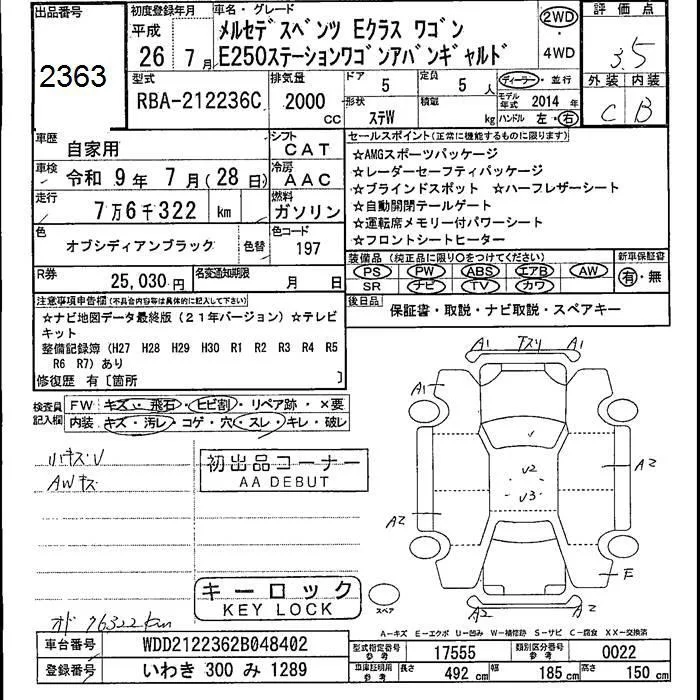 出品番号
2363
初度登録年月
平成
26 年 7 月
車名・グレード
メルセデスベンツ Eクラス ワゴン
E250ステーションワゴンアバンギャルド
2WD
・
4WD
評価点
3.5
外装 内装
C B
型式
RBA-212236C
排気量
2000
cc
ドア
5
定員
5 人
形状
ステW
積載
kg
ディーラー・並行
モデル年式 2014 年
ハンドル 左・右
車歴
自家用
シフト
CAT
車検
令和 9年 7月(28日)
冷房
AAC
走行
7万6千322 km
燃料
ガソリン
色
オブシディアンブラック
色替
色コード
197
R券
25,030円
名変通知期限
月 日
セールスポイント(正常に機能するものに限ります)
☆AMGスポーツパッケージ
☆レーダーセーフティパッケージ
☆ブラインドスポット ☆ハーフレザーシート
☆自動開閉テールゲート
☆運転席メモリー付パワーシート
☆フロントシートヒーター
装備品(純正品に限り○をつけてください)
PS PW ABS エアB AW
SR ナビ TV カワ
新車保証書
有・無
後日品
保証書・取説・ナビ取説・スペアキー
注意事項申告欄(不具合内容等は具体的に記入して下さい)
☆ナビ地図データ最終版(21年バージョン)☆テレビ
キット
整備記録簿(H27 H28 H29 H30 R1 R2 R3 R4 R5
R6 R7)あり
修復歴 有〔箇所 〕
検査員
記入欄
FW キズ・飛石・ヒビ割・リペア跡・×要
内装 キズ・汚レ・コゲ・穴・スレ・キレ・破レ
ハキズU
AWキズ
初出品コーナー
AA DEBUT
キーロック
KEY LOCK
オド 76322km
A1 A1
A1
U
U2
U3
A2
A2
F
A2 A2
スペア
A-キズ E-エクボ U-凹み W-補修跡 S-サビ C-腐食 XX-交換済
車台番号
WDD2122362B048402
登録番号
いわき 300 み 1289
型式指定番号
参考
17555
類別区分番号
参考
0022
車庫証明用
参考
長さ 492 cm
幅 185 cm
高さ 150 cm